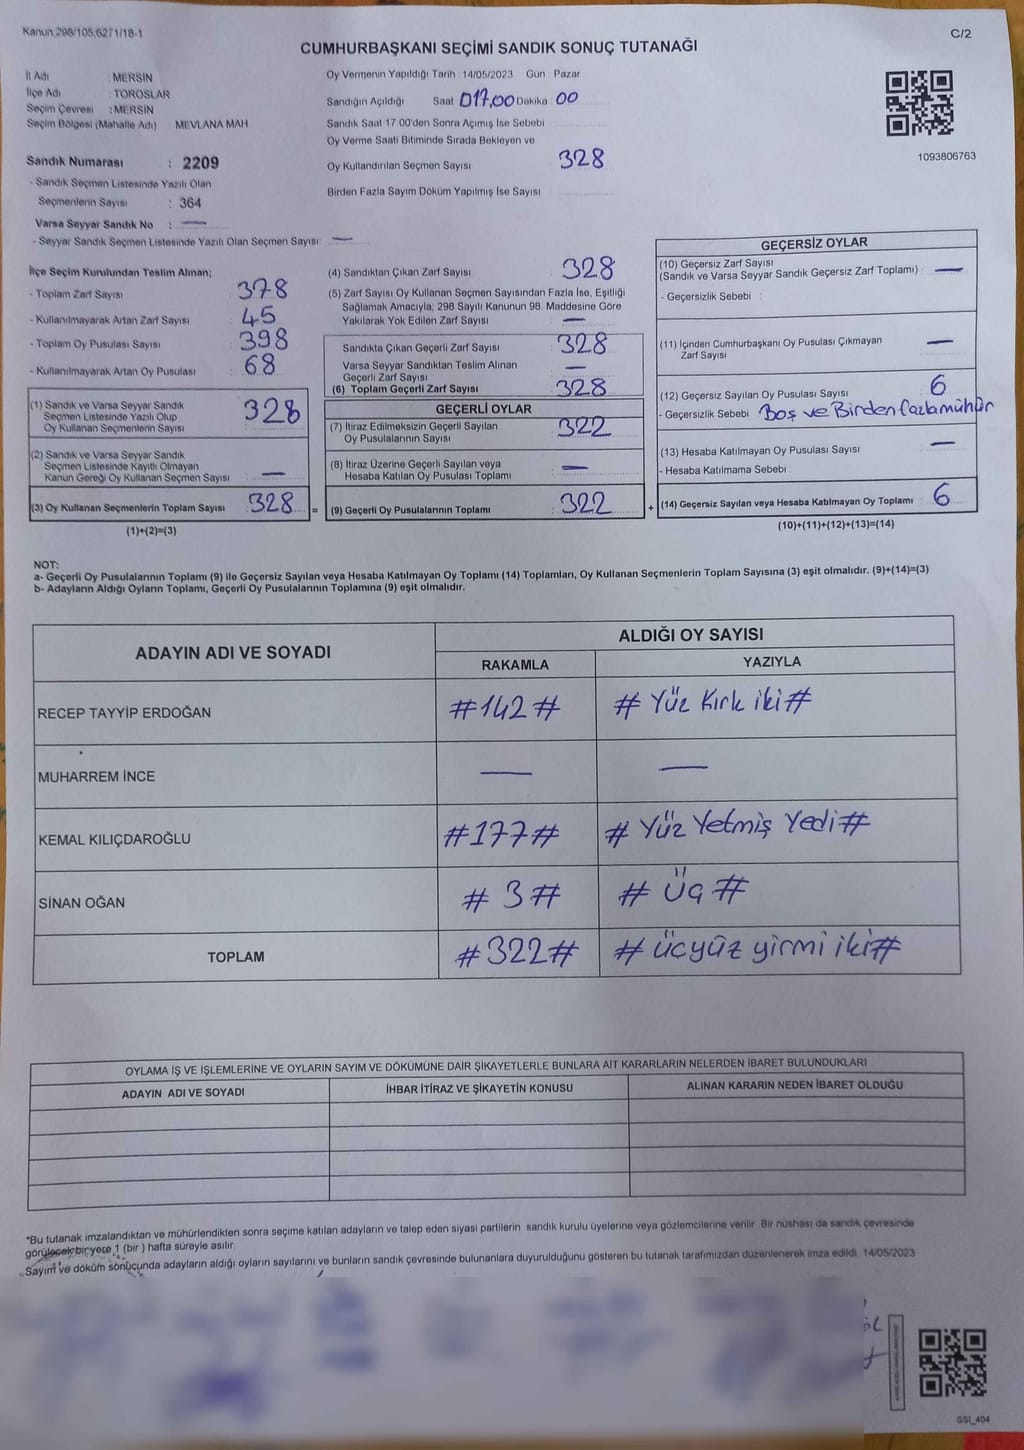 Kanun:298/105;6271/18-1
C/2
CUMHURBAŞKANI SEÇİMİ SANDIK SONUÇ TUTANAĞI
İl Adı : MERSİN
İlçe Adı : TOROSLAR
Seçim Çevresi : MERSİN
Seçim Bölgesi (Mahalle Adı) : MEVLANA MAH.
Sandık Numarası : 2209
- Sandık Seçmen Listesinde Yazılı Olan
Seçmenlerin Sayısı : 364
Varsa Seyyar Sandık No : —
- Seyyar Sandık Seçmen Listesinde Yazılı Olan Seçmen Sayısı : —
Oy Vermenin Yapıldığı Tarih : 14/05/2023 Gün : Pazar
Sandığın Açıldığı Saat 017,00 Dakika 00
Sandık Saat 17.00'den Sonra Açımış İse Sebebi
Oy Verme Saati Bitiminde Sırada Bekleyen ve
Oy Kullandırılan Seçmen Sayısı 328
Birden Fazla Sayım Döküm Yapılmış İse Sayısı
1093806763
İlçe Seçim Kurulundan Teslim Alınan;
- Toplam Zarf Sayısı 378
- Kullanılmayarak Artan Zarf Sayısı 45
- Toplam Oy Pusulası Sayısı 398
- Kullanılmayarak Artan Oy Pusulası 68
(1) Sandık ve Varsa Seyyar Sandık
Seçmen Listesinde Yazılı Olup
Oy Kullanan Seçmenlerin Sayısı 328
(2) Sandık ve Varsa Seyyar Sandık
Seçmen Listesinde Kayıtlı Olmayan
Kanun Gereği Oy Kullanan Seçmen Sayısı —
(3) Oy Kullanan Seçmenlerin Toplam Sayısı 328 =
(1)+(2)=(3)
(4) Sandıktan Çıkan Zarf Sayısı 328
(5) Zarf Sayısı Oy Kullanan Seçmen Sayısından Fazla İse, Eşitliği
Sağlamak Amacıyla; 298 Sayılı Kanunun 98. Maddesine Göre
Yakılarak Yok Edilen Zarf Sayısı —
Sandıkta Çıkan Geçerli Zarf Sayısı 328
Varsa Seyyar Sandıktan Teslim Alınan
Geçerli Zarf Sayısı —
(6) Toplam Geçerli Zarf Sayısı 328
GEÇERLİ OYLAR
(7) İtiraz Edilmeksizin Geçerli Sayılan
Oy Pusulalarının Sayısı 322
(8) İtiraz Üzerine Geçerli Sayılan veya
Hesaba Katılan Oy Pusulası Toplamı —
(9) Geçerli Oy Pusulalarının Toplamı 322 +
GEÇERSİZ OYLAR
(10) Geçersiz Zarf Sayısı
(Sandık ve Varsa Seyyar Sandık Geçersiz Zarf Toplamı) —
- Geçersizlik Sebebi :
(11) İçinden Cumhurbaşkanı Oy Pusulası Çıkmayan
Zarf Sayısı —
(12) Geçersiz Sayılan Oy Pusulası Sayısı 6
- Geçersizlik Sebebi Boş ve Birden fazla mühür
(13) Hesaba Katılmayan Oy Pusulası Sayısı —
- Hesaba Katılmama Sebebi :
(14) Geçersiz Sayılan veya Hesaba Katılmayan Oy Toplamı 6
(10)+(11)+(12)+(13)=(14)
NOT:
a- Geçerli Oy Pusulalarının Toplamı (9) ile Geçersiz Sayılan veya Hesaba Katılmayan Oy Toplamı (14) Toplamları, Oy Kullanan Seçmenlerin Toplam Sayısına (3) eşit olmalıdır. (9)+(14)=(3)
b- Adayların Aldığı Oyların Toplamı, Geçerli Oy Pusulalarının Toplamına (9) eşit olmalıdır.
ADAYIN ADI VE SOYADI
ALDIĞI OY SAYISI
RAKAMLA YAZIYLA
RECEP TAYYİP ERDOĞAN #142# # Yüz Kırk iki #
MUHARREM İNCE — —
KEMAL KILIÇDAROĞLU #177# # Yüz Yetmiş Yedi #
SİNAN OĞAN # 3 # # Üç #
TOPLAM #322# # üçyüz yirmi iki #
OYLAMA İŞ VE İŞLEMLERİNE VE OYLARIN SAYIM VE DÖKÜMÜNE DAİR ŞİKAYETLERLE BUNLARA AİT KARARLARIN NELERDEN İBARET BULUNDUKLARI
ADAYIN ADI VE SOYADI İHBAR İTİRAZ VE ŞİKAYETİN KONUSU ALINAN KARARIN NEDEN İBARET OLDUĞU
*Bu tutanak imzalandıktan ve mühürlendikten sonra seçime katılan adayların ve talep eden siyasi partilerin sandık kurulu üyelerine veya gözlemcilerine verilir. Bir nüshası da sandık çevresinde
görülecek bir yere 1 (bir ) hafta süreyle asılır.
Sayım ve döküm sonucunda adayların aldığı oyların sayılarını ve bunların sandık çevresinde bulunanlara duyurulduğunu gösteren bu tutanak tarafımızdan düzenlenerek imza edildi. 14/05/2023
SSI_404